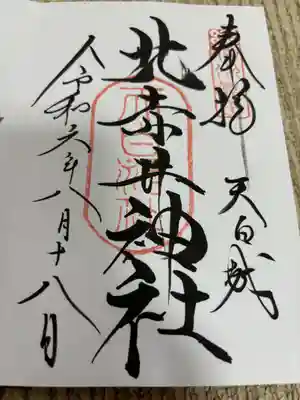 奉拝
天白城
北井神社
令和六年八月十八日